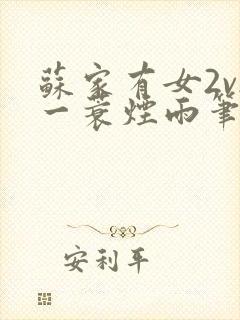 蘇家有女2v
一蓑煙雨筆
安利平